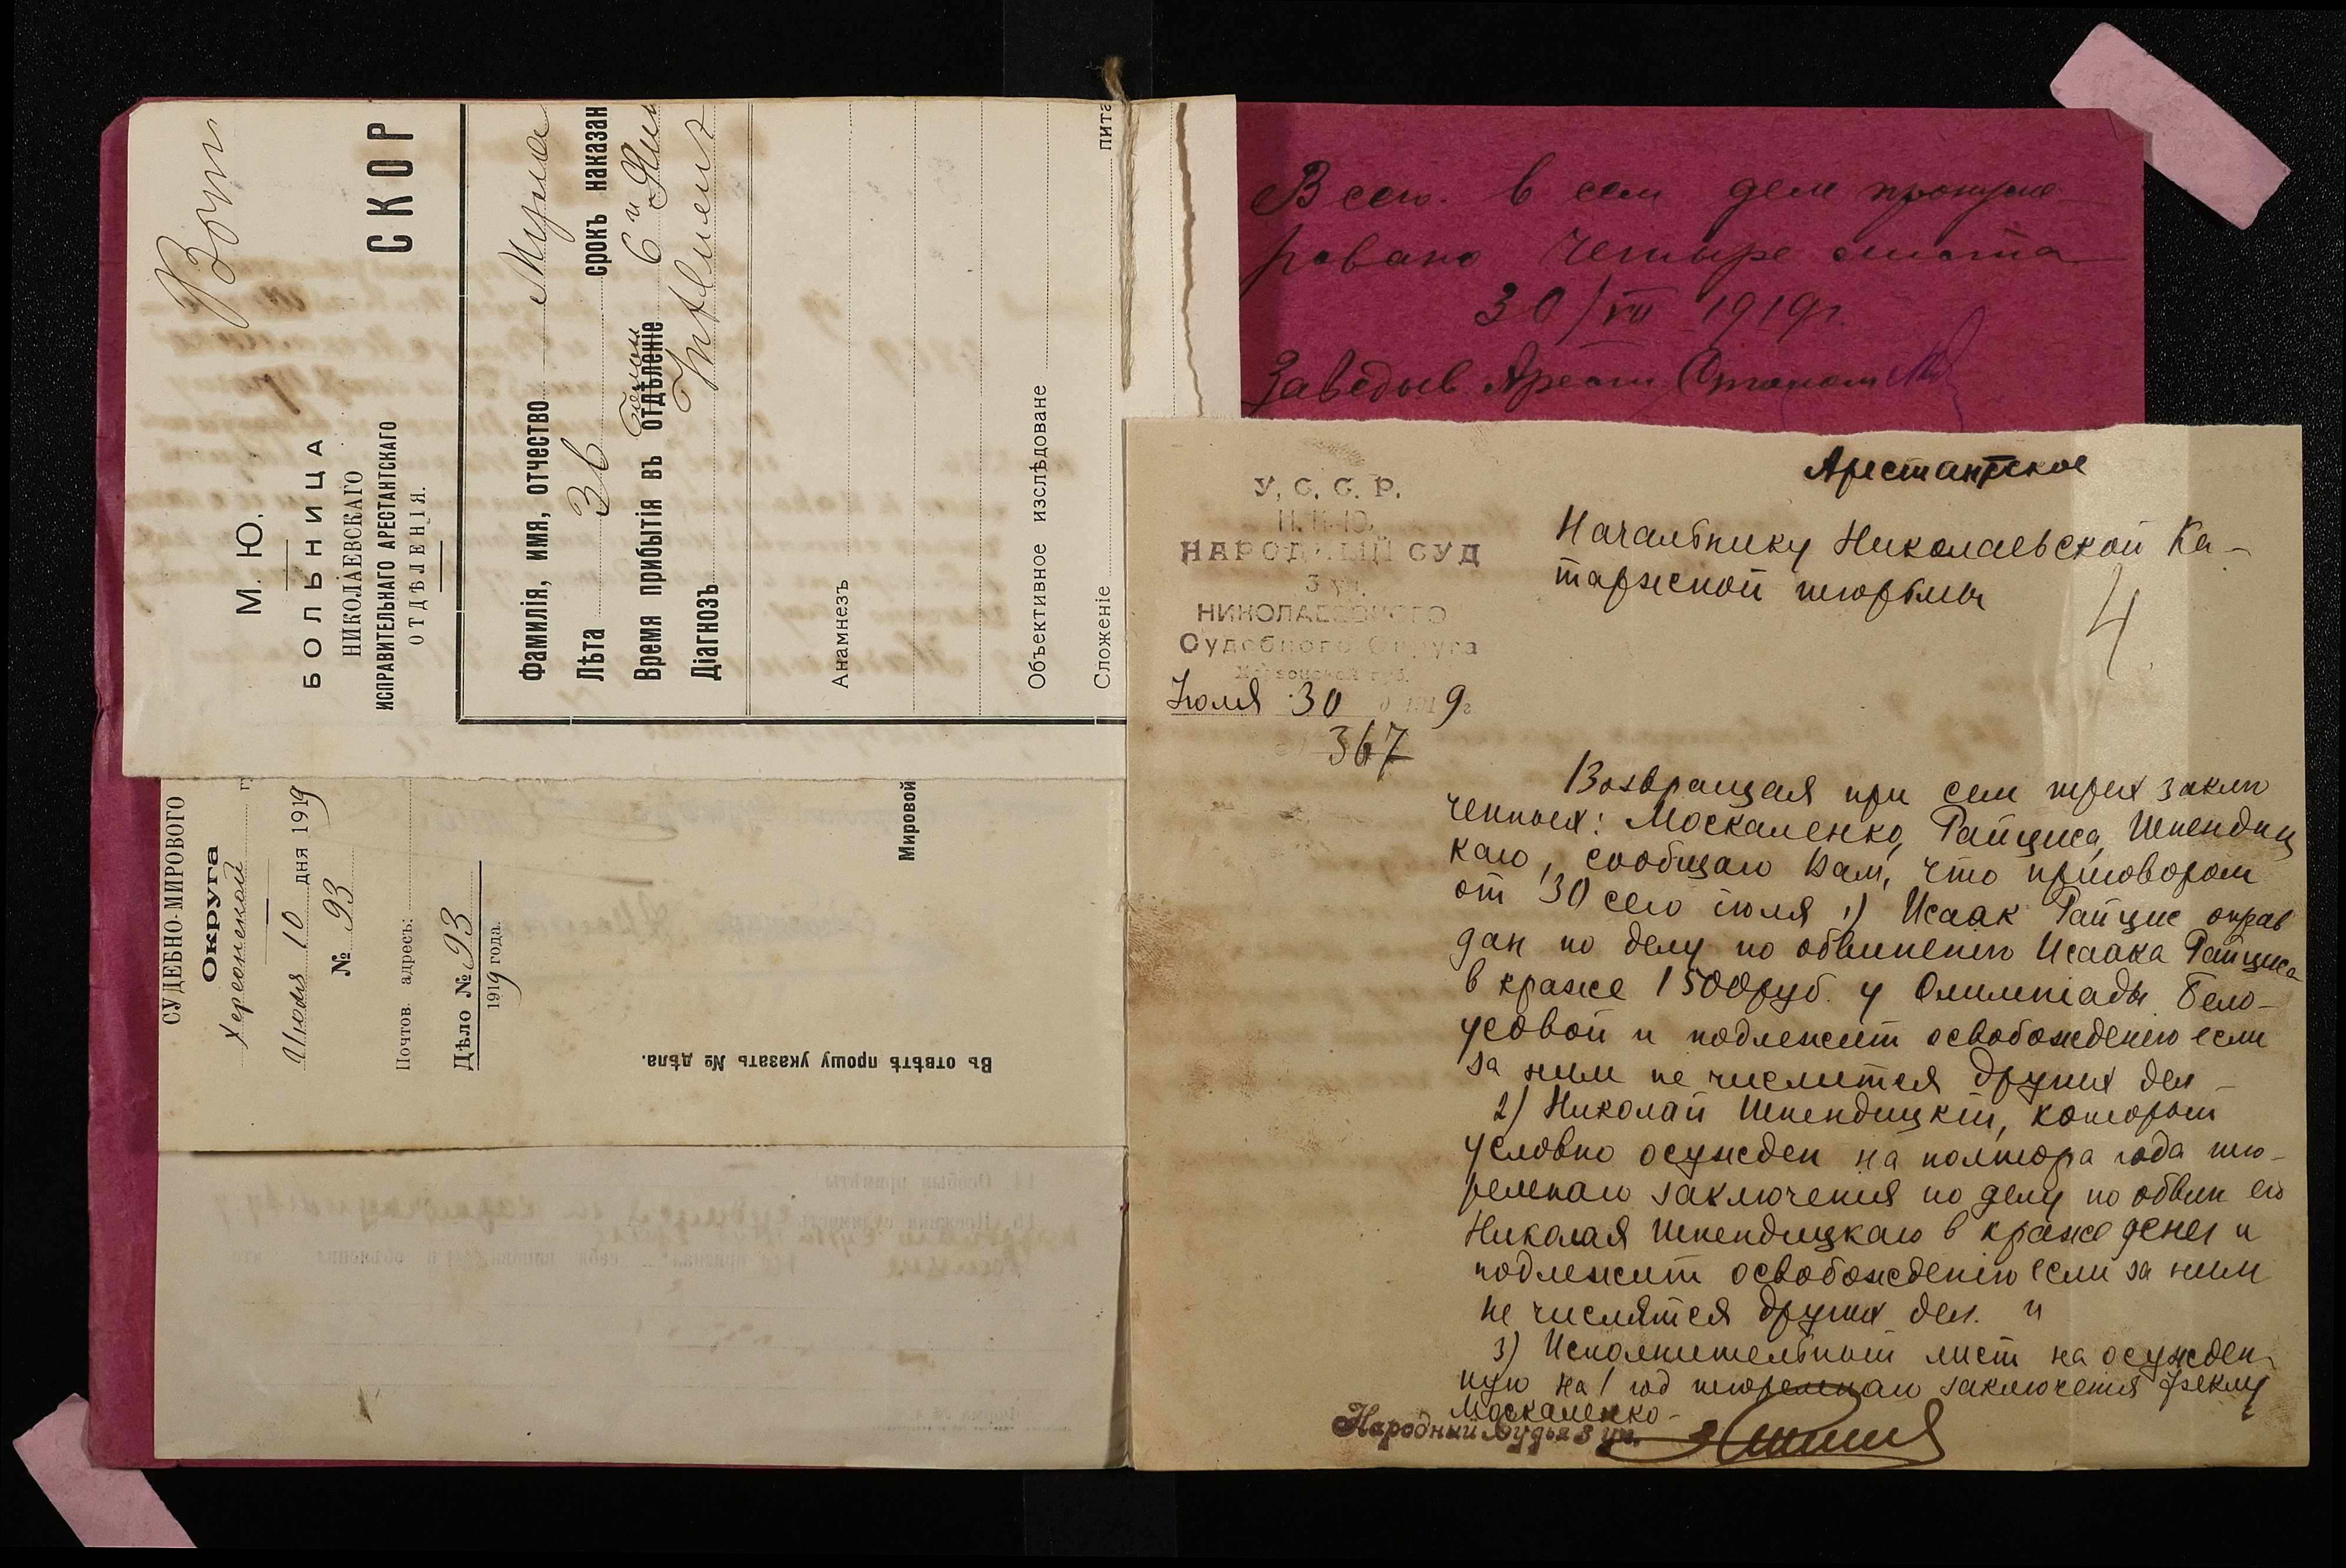 М. Ю.
БОЛЬНИЦА
НИКОЛАЕВСКАГО
ИСПРАВИТЕЛЬНАГО АРЕСТАНТСКАГО
ОТДѢЛЕНІЯ.
СКОР
Фамилія, имя, отчество
Лѣта 36 срокъ наказан
Время прибытія въ отдѣленіе 6
Діагнозъ
Анамнезъ
Объективное изслѣдованіе
Сложеніе пита
СУДЕБНО-МИРОВОГО
Округа
Херсонской г
Июля 10 дня 1919
№ 93
Почтов. адресъ:
Дѣло № 93
1919 года.
Мировой
Въ отвѣтѣ прошу указать № дѣла.
Всего в сем деле пронуме
ровано четыре листа
30/VII 1919г.
Заведыв Арест Столом
Арестантское
У. С. С. Р.
Н. К. Ю.
НАРОДНЫЙ СУД
3 уч.
НИКОЛАЕВСКОГО
Судебного Округа
Херсонской губ.
Июля 30 1919г.
367
Начальнику Николаевской Ка-
таржской тюрьмы
4
Возвращая при сем трех заклю
ченных: Москаленко, Райциса, Шпендиц
каго, сообщаю Вам, что приговором
от 30 сего июля 1) Исаак Райцис оправ
дан по делу по обвинению Исаака Райциса
в краже 1500 руб. у Олимпіады Бело-
усовой и подлежит освобождению если
за ним не числится других дел -
2) Николай Шпендицкій, который
условно осужден на полтора года тю-
ремнаго заключения по делу по обвин его
Николая Шпендицкаго в краже денег и
подлежит освобождению если за ним
не числятся других дел. и
3) Исполнительный лист на осужден
ную на 1 год тюремнаго заключения Феклу
Москаленко -
Народный Судья 3 уч.